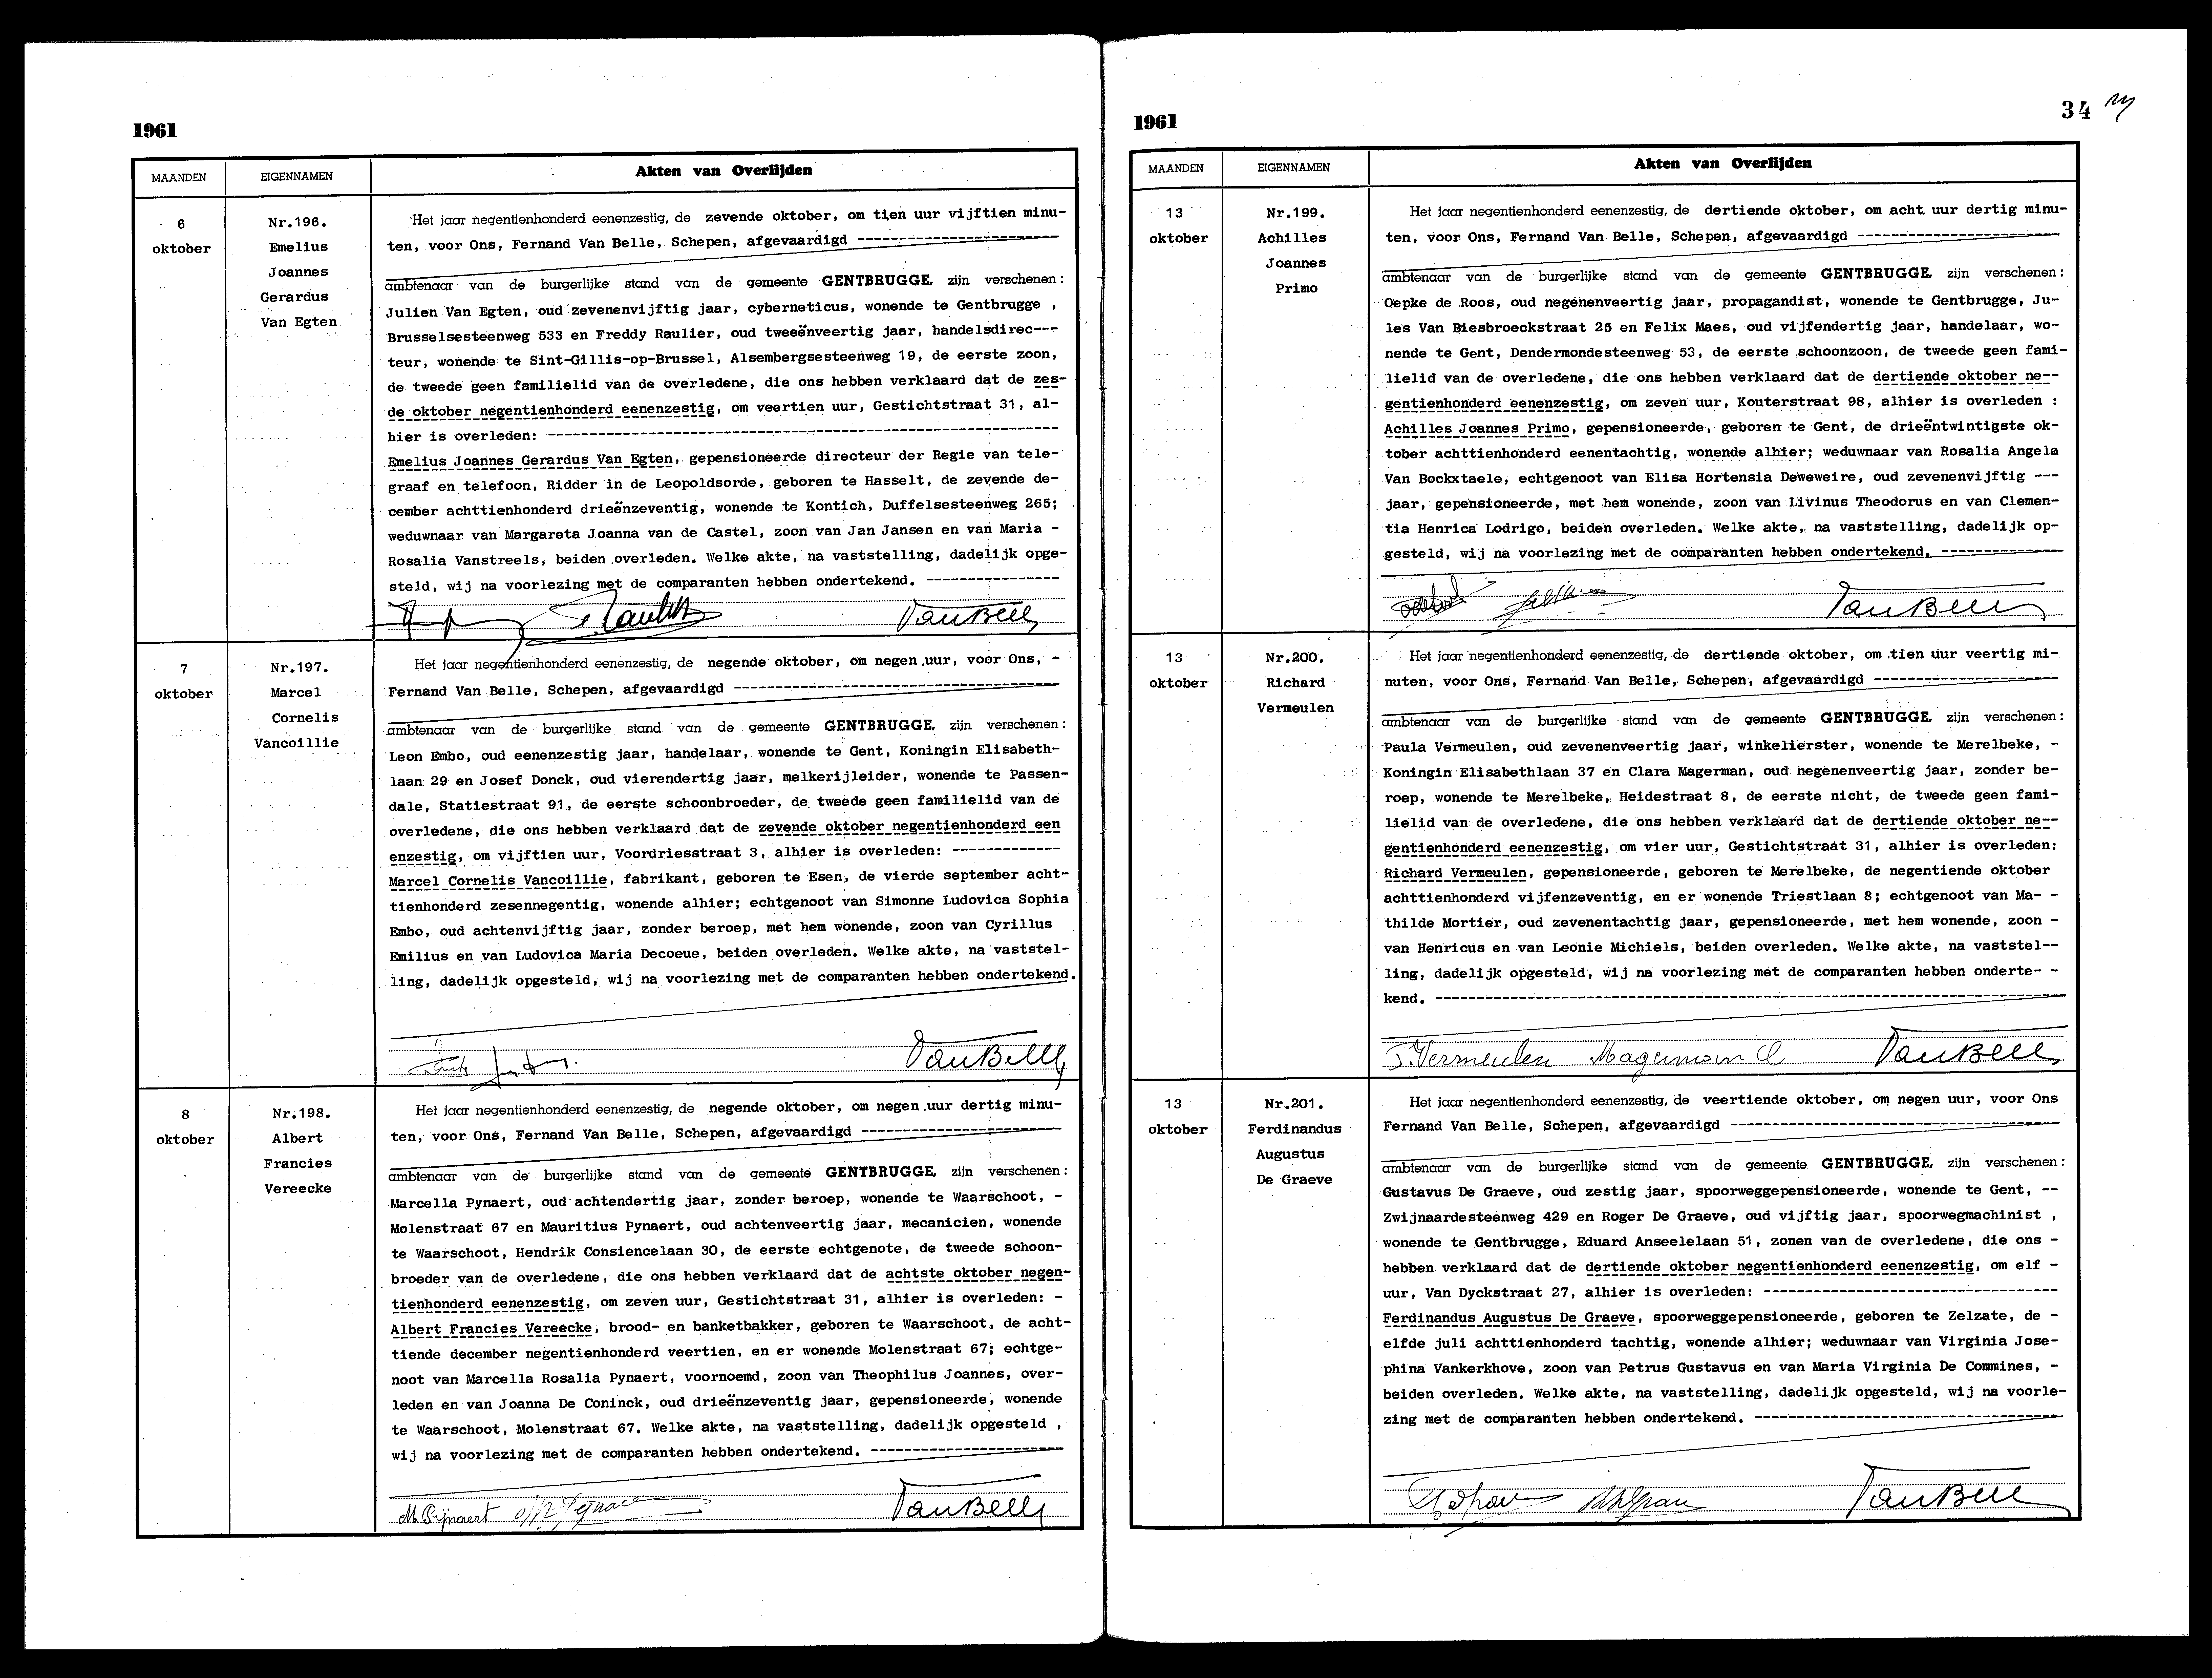 1961
MAANDEN EIGENNAMEN Akten van Overlijden
6
oktober
Nr.196.
Emelius
Joannes
Gerardus
Van Egten
Het jaar negentienhonderd eenenzestig, de zevende oktober, om tien uur vijftien minu-
ten, voor Ons, Fernand Van Belle, Schepen, afgevaardigd ------------------------
ambtenaar van de burgerlijke stand van de gemeente GENTBRUGGE, zijn verschenen:
Julien Van Egten, oud zevenenvijftig jaar, cyberneticus, wonende te Gentbrugge ,
Brusselsesteenweg 533 en Freddy Raulier, oud tweeënveertig jaar, handelsdirec---
teur, wonende te Sint-Gillis-op-Brussel, Alsembergsesteenweg 19, de eerste zoon,
de tweede geen familielid van de overledene, die ons hebben verklaard dat de zes-
de oktober negentienhonderd eenenzestig, om veertien uur, Gestichtstraat 31, al-
hier is overleden: --------------------------------------------------------------
Emelius Joannes Gerardus Van Egten, gepensioneerde directeur der Regie van tele-
graaf en telefoon, Ridder in de Leopoldsorde, geboren te Hasselt, de zevende de-
cember achttienhonderd drieënzeventig, wonende te Kontich, Duffelsesteenweg 265;
weduwnaar van Margareta Joanna van de Castel, zoon van Jan Jansen en van Maria -
Rosalia Vanstreels, beiden overleden. Welke akte, na vaststelling, dadelijk opge-
steld, wij na voorlezing met de comparanten hebben ondertekend. ----------------
VanBelle
7
oktober
Nr.197.
Marcel
Cornelis
Vancoillie
Het jaar negentienhonderd eenenzestig, de negende oktober, om negen uur, voor Ons, -
Fernand Van Belle, Schepen, afgevaardigd ---------------------------------------
ambtenaar van de burgerlijke stand van de gemeente GENTBRUGGE, zijn verschenen:
Leon Embo, oud eenenzestig jaar, handelaar, wonende te Gent, Koningin Elisabeth-
laan 29 en Josef Donck, oud vierendertig jaar, melkerijleider, wonende te Passen-
dale, Statiestraat 91, de eerste schoonbroeder, de tweede geen familielid van de
overledene, die ons hebben verklaard dat de zevende oktober negentienhonderd een
enzestig, om vijftien uur, Voordriesstraat 3, alhier is overleden: -------------
Marcel Cornelis Vancoillie, fabrikant, geboren te Esen, de vierde september acht-
tienhonderd zesennegentig, wonende alhier; echtgenoot van Simonne Ludovica Sophia
Embo, oud achtenvijftig jaar, zonder beroep, met hem wonende, zoon van Cyrillus
Emilius en van Ludovica Maria Decoeue, beiden overleden. Welke akte, na vaststel-
ling, dadelijk opgesteld, wij na voorlezing met de comparanten hebben ondertekend.
VanBelle
8
oktober
Nr.198.
Albert
Francies
Vereecke
Het jaar negentienhonderd eenenzestig, de negende oktober, om negen uur dertig minu-
ten, voor Ons, Fernand Van Belle, Schepen, afgevaardigd ------------------------
ambtenaar van de burgerlijke stand van de gemeente GENTBRUGGE, zijn verschenen:
Marcella Pynaert, oud achtendertig jaar, zonder beroep, wonende te Waarschoot, -
Molenstraat 67 en Mauritius Pynaert, oud achtenveertig jaar, mecanicien, wonende
te Waarschoot, Hendrik Consiencelaan 30, de eerste echtgenote, de tweede schoon-
broeder van de overledene, die ons hebben verklaard dat de achtste oktober negen-
tienhonderd eenenzestig, om zeven uur, Gestichtstraat 31, alhier is overleden: -
Albert Francies Vereecke, brood- en banketbakker, geboren te Waarschoot, de acht-
tiende december negentienhonderd veertien, en er wonende Molenstraat 67; echtge-
noot van Marcella Rosalia Pynaert, voornoemd, zoon van Theophilus Joannes, over-
leden en van Joanna De Coninck, oud drieënzeventig jaar, gepensioneerde, wonende
te Waarschoot, Molenstraat 67. Welke akte, na vaststelling, dadelijk opgesteld ,
wij na voorlezing met de comparanten hebben ondertekend. -----------------------
M Pijnaert VanBelle
1961
34
MAANDEN EIGENNAMEN Akten van Overlijden
13
oktober
Nr.199.
Achilles
Joannes
Primo
Het jaar negentienhonderd eenenzestig, de dertiende oktober, om acht uur dertig minu-
ten, voor Ons, Fernand Van Belle, Schepen, afgevaardigd ------------------------
ambtenaar van de burgerlijke stand van de gemeente GENTBRUGGE, zijn verschenen:
Oepke de Roos, oud negenenveertig jaar, propagandist, wonende te Gentbrugge, Ju-
les Van Biesbroeckstraat 25 en Felix Maes, oud vijfendertig jaar, handelaar, wo-
nende te Gent, Dendermondesteenweg 53, de eerste schoonzoon, de tweede geen fami-
lielid van de overledene, die ons hebben verklaard dat de dertiende oktober ne--
gentienhonderd eenenzestig, om zeven uur, Kouterstraat 98, alhier is overleden :
Achilles Joannes Primo, gepensioneerde, geboren te Gent, de drieëntwintigste ok-
tober achttienhonderd eenentachtig, wonende alhier; weduwnaar van Rosalia Angela
Van Bockxtaele, echtgenoot van Elisa Hortensia Deweweire, oud zevenenvijftig ---
jaar, gepensioneerde, met hem wonende, zoon van Livinus Theodorus en van Clemen-
tia Henrica Lodrigo, beiden overleden. Welke akte, na vaststelling, dadelijk op-
gesteld, wij na voorlezing met de comparanten hebben ondertekend. ---------------
VanBelle
13
oktober
Nr.200.
Richard
Vermeulen
Het jaar negentienhonderd eenenzestig, de dertiende oktober, om tien uur veertig mi-
nuten, voor Ons, Fernand Van Belle, Schepen, afgevaardigd ----------------------
ambtenaar van de burgerlijke stand van de gemeente GENTBRUGGE, zijn verschenen:
Paula Vermeulen, oud zevenenveertig jaar, winkelierster, wonende te Merelbeke, -
Koningin Elisabethlaan 37 en Clara Magerman, oud negenenveertig jaar, zonder be-
roep, wonende te Merelbeke, Heidestraat 8, de eerste nicht, de tweede geen fami-
lielid van de overledene, die ons hebben verklaard dat de dertiende oktober ne--
gentienhonderd eenenzestig, om vier uur, Gestichtstraat 31, alhier is overleden:
Richard Vermeulen, gepensioneerde, geboren te Merelbeke, de negentiende oktober
achttienhonderd vijfenzeventig, en er wonende Triestlaan 8; echtgenoot van Ma- -
thilde Mortier, oud zevenentachtig jaar, gepensioneerde, met hem wonende, zoon -
van Henricus en van Leonie Michiels, beiden overleden. Welke akte, na vaststel--
ling, dadelijk opgesteld, wij na voorlezing met de comparanten hebben onderte- -
kend. --------------------------------------------------------------------------
P. Vermeulen Magerman C VanBelle
13
oktober
Nr.201.
Ferdinandus
Augustus
De Graeve
Het jaar negentienhonderd eenenzestig, de veertiende oktober, om negen uur, voor Ons
Fernand Van Belle, Schepen, afgevaardigd ---------------------------------------
ambtenaar van de burgerlijke stand van de gemeente GENTBRUGGE, zijn verschenen:
Gustavus De Graeve, oud zestig jaar, spoorweggepensioneerde, wonende te Gent, --
Zwijnaardesteenweg 429 en Roger De Graeve, oud vijftig jaar, spoorwegmachinist ,
wonende te Gentbrugge, Eduard Anseelelaan 51, zonen van de overledene, die ons -
hebben verklaard dat de dertiende oktober negentienhonderd eenenzestig, om elf -
uur, Van Dyckstraat 27, alhier is overleden: -----------------------------------
Ferdinandus Augustus De Graeve, spoorweggepensioneerde, geboren te Zelzate, de -
elfde juli achttienhonderd tachtig, wonende alhier; weduwnaar van Virginia Jose-
phina Vankerkhove, zoon van Petrus Gustavus en van Maria Virginia De Commines, -
beiden overleden. Welke akte, na vaststelling, dadelijk opgesteld, wij na voorle-
zing met de comparanten hebben ondertekend. ------------------------------------
VanBelle